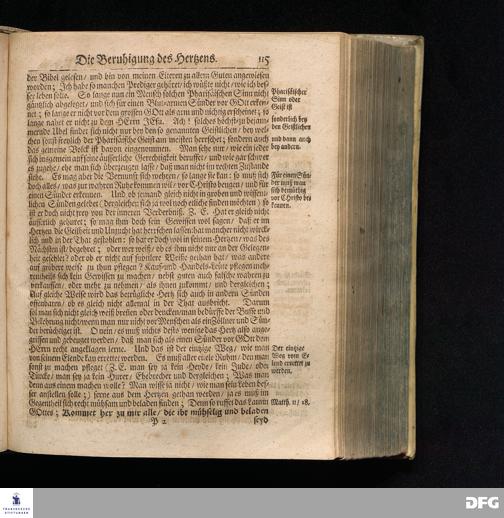 Die Beruhigung des Hertzens. 115
der Bibel gelesen/ und bin von meinen Eltern zu allem Guten angewiesen
worden; Ich habe so manchen Prediger gehöret/ ich wüste nicht/ wie ich bes-
ser leben solte. So lange nun ein Mensch solchen Pharisäischen Sinn nicht
gäntzlich abgeleget/ und sich für einen Blut-armen Sünder vor GOtt erken-
net; so lange er nicht vor dem grossen GOtt als arm und nichtig erscheinet; so
lange nahet er nicht zu dem HErrn JEsu. Ach! solches höchst zu bejam-
mernde Ubel findet sich nicht nur bey den so genannten Geistlichen/ bey wel-
chen sonst freylich der Pharisäische Geist am meisten herrschet; sondern auch
das gemeine Volck ist davon eingenommen. Man sehe nur/ wie ein jeder
sich insgemein auf seine äusserliche Gerechtigkeit beruffet/ und wie gar schwer
es zugehe/ ehe man sich überzeugen lasse/ daß man nicht im rechten Zustande
stehe. Es mag aber die Vernunfft rechten/ so lange sie kan; so muß sich
doch alles/ was zur wahren Ruhe kommen will/ vor Christo beugen/ und für
einen Sünder erkennen. Und ob jemand gleich nicht in groben und wissent-
lichen Sünden gelebet (dergleichen sich ja wol noch etliche finden möchten) so
ist er doch nicht frey von der inneren Verderbniß. Z. E. Hat er gleich nicht
äusserlich gehuret; so mag ihm doch sein Gewissen wol sagen/ daß er im
Hertzen die Geilheit und Unzucht hat herrschen lassen: hat mancher nicht würck-
lich und in der That gestohlen; so hat er doch wol in seinem Hertzen/ was des
Nächsten ist/ begehret; oder wer weiß/ ob es ihm nicht nur an der Gelegen-
heit gefehlet? oder ob er nicht auf subtilere Weise gethan hat/ was andere
auf gröbere weise zu thun pflegen? Kauf- und Handels-Leute pflegen meh-
rentheils sich kein Gewissen zu machen/ nebst guten auch falsche wahren zu
verkauffen/ oder mehr zu nehmen/ als ihnen zukommt/ und dergleichen;
Auf gleiche Weise wird das betrügliche Hertz sich auch in andern Sünden
offenbaren/ ob es gleich nicht allemal in der That ausbricht. Darum
sol man sich nicht gleich weiß brennen oder dencken/ man bedürffe der Busse und
Bekehrung nicht/ wenn man nur nicht vor Menschen als ein Zöllner und Sün-
der berüchtiget ist. O nein/ es muß nichts desto wenige das Hertz also ange-
griffen und gebeuget werden/ daß man sich als einen Sünder vor GOtt dem
HErrn recht angeklaget lerne. Und das ist der eintzige Weg/ wie man
von seinem Elende kan errettet werden. Es muß aller eitele Ruhm/ den man
sonst zu machen pfleget (Z. E. man sey ja kein Heyde/ kein Jude/ oder
Türcke/ man sey ja kein Hurer/ Ehebrecher und dergleichen; Was man
denn aus einem machen wolle? Man wisse ja nicht/ wie man sein Leben bes-
ser anstellen solle;) ferne aus dem Hertzen gethan werden/ ja es muß im
Gegentheil sich recht mühsam und beladen finden; Denn so ruffet das Lamm
GOttes; Kommet her zu mir alle/ die ihr mühselig und beladen
P 2 seyd
Pharisäischer
Sinn oder
Geist ist
sonderlich bey
den Geistlichen
und dann auch
bey andern.
Für einen Sün-
der muß man
sich demüthig
vor Christo be-
kennen.
Der eintzige
Weg vom E-
lend errettet zu
werden.
Matth. 11/ 28.
FRANCKESCHE
STIFTUNGEN
DFG